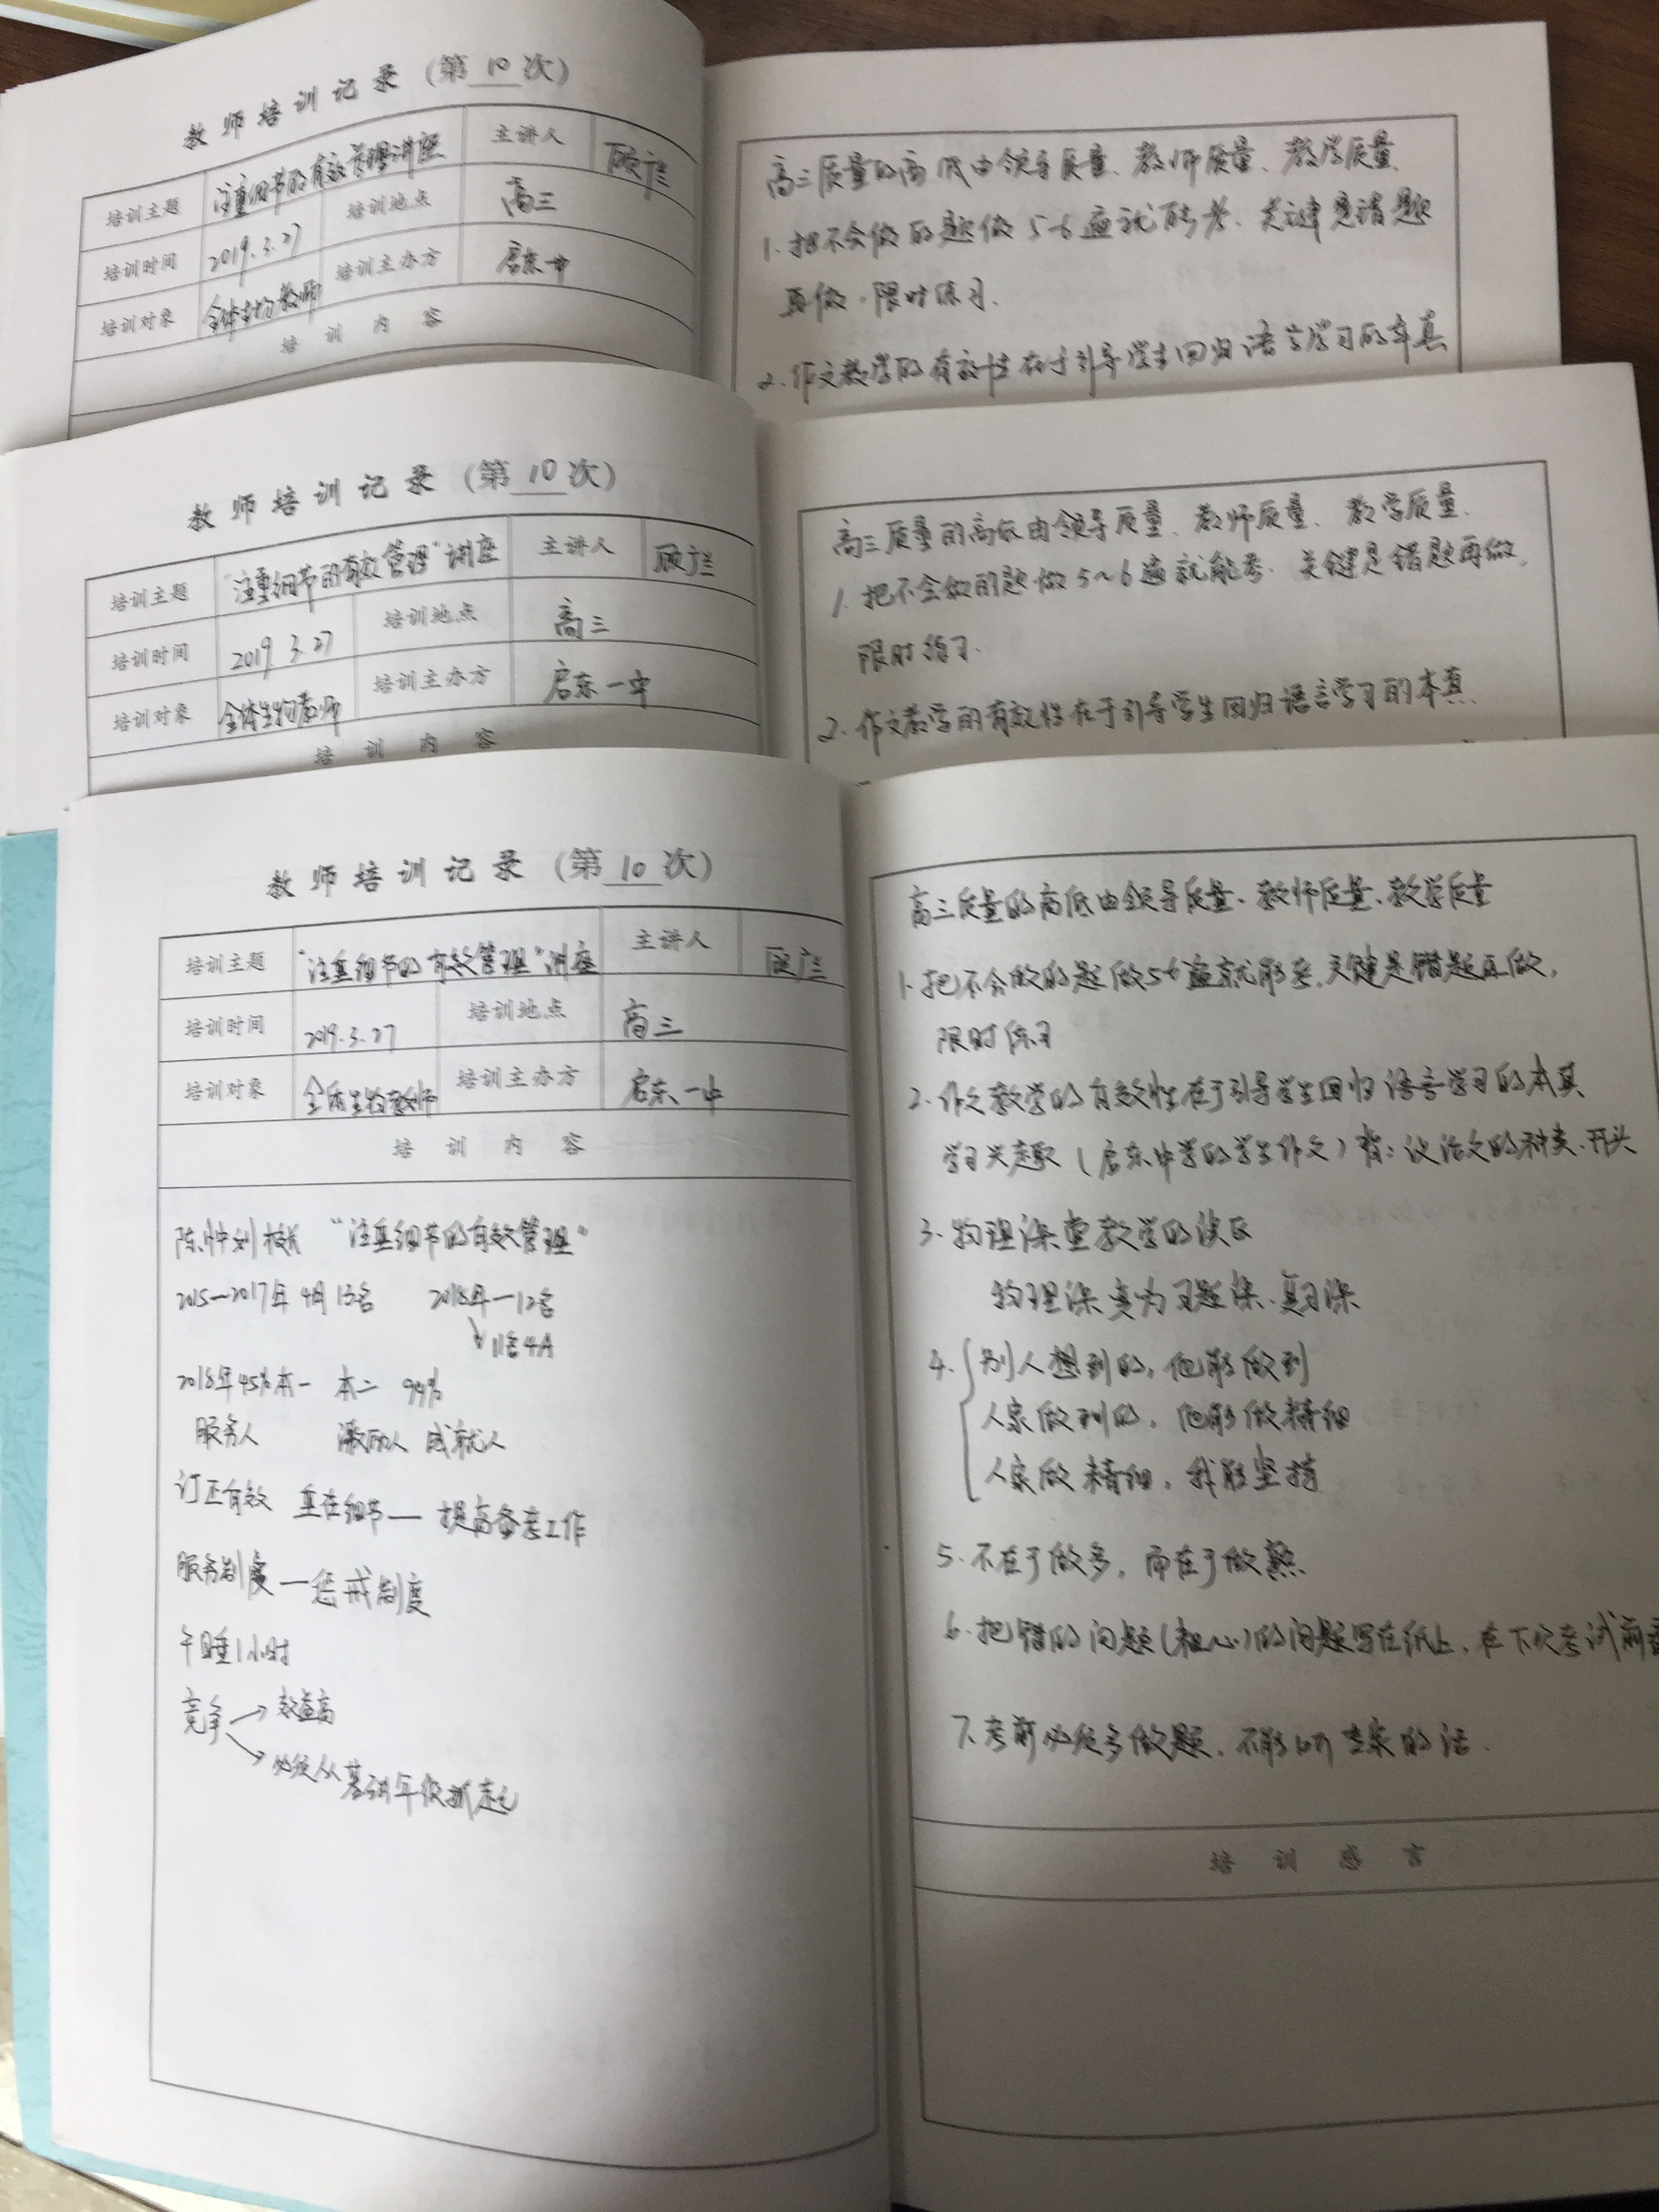 教师培训记录（第 10 次）
培训主题 注重细节的有效管理讲座 主讲人 顾广兰
培训时间 2019.3.27 培训地点 高三
培训对象 全体生物教师 培训主办方 启东一中
培训内容
高三质量的高低由领导质量、教师质量、教学质量.
1. 把不会做的题做5-6遍就能考. 关键是错题
再做. 限时练习.
2. 作文教学的有效性在于引导学生回归语言学习的本真
教师培训记录（第 10 次）
培训主题 “注重细节的有效管理”讲座 主讲人 顾广兰
培训时间 2019 3.27 培训地点 高三
培训对象 全体生物教师 培训主办方 启东一中
培训内容
高三质量的高低由领导质量、教师质量、教学质量.
1. 把不会做的题做5~6遍就能考. 关键是错题再做,
限时练习.
2. 作文教学的有效性在于引导学生回归语言学习的本真.
教师培训记录（第 10 次）
培训主题 “注重细节的有效管理”讲座 主讲人 顾广兰
培训时间 2019.3.27 培训地点 高三
培训对象 全体生物教师 培训主办方 启东一中
培训内容
校长 “注重细节的有效管理”
2015—2017年 13名 2018年—12名
11名4A
2018年45%本一 本二 99%
服务人 激励人 成就人
订正有效 重在细节— 提高备考工作
服务制度—惩戒制度
午睡1小时
竞争→效益高
→必须从基础年级抓起
高三质量的高低由领导质量、教师质量、教学质量
1. 把不会做的题做5-6遍就能考,关键是错题再做,
限时练习
2. 作文教学的有效性在于引导学生回归语言学习的本真
学习兴趣（启东中学的学生作文）背：议论文的种类、开头
3. 物理课堂教学的误区
物理课变为习题课、复习课
4. 别人想到的, 他能做到
人家做到的, 他能做精细
人家做精细, 我能坚持
5. 不在于做多, 而在于做熟
6. 把错的问题(粗心)的问题写在纸上, 在下次考试前看
7. 考前必须多做题, 不能听专家的话.
培训感言